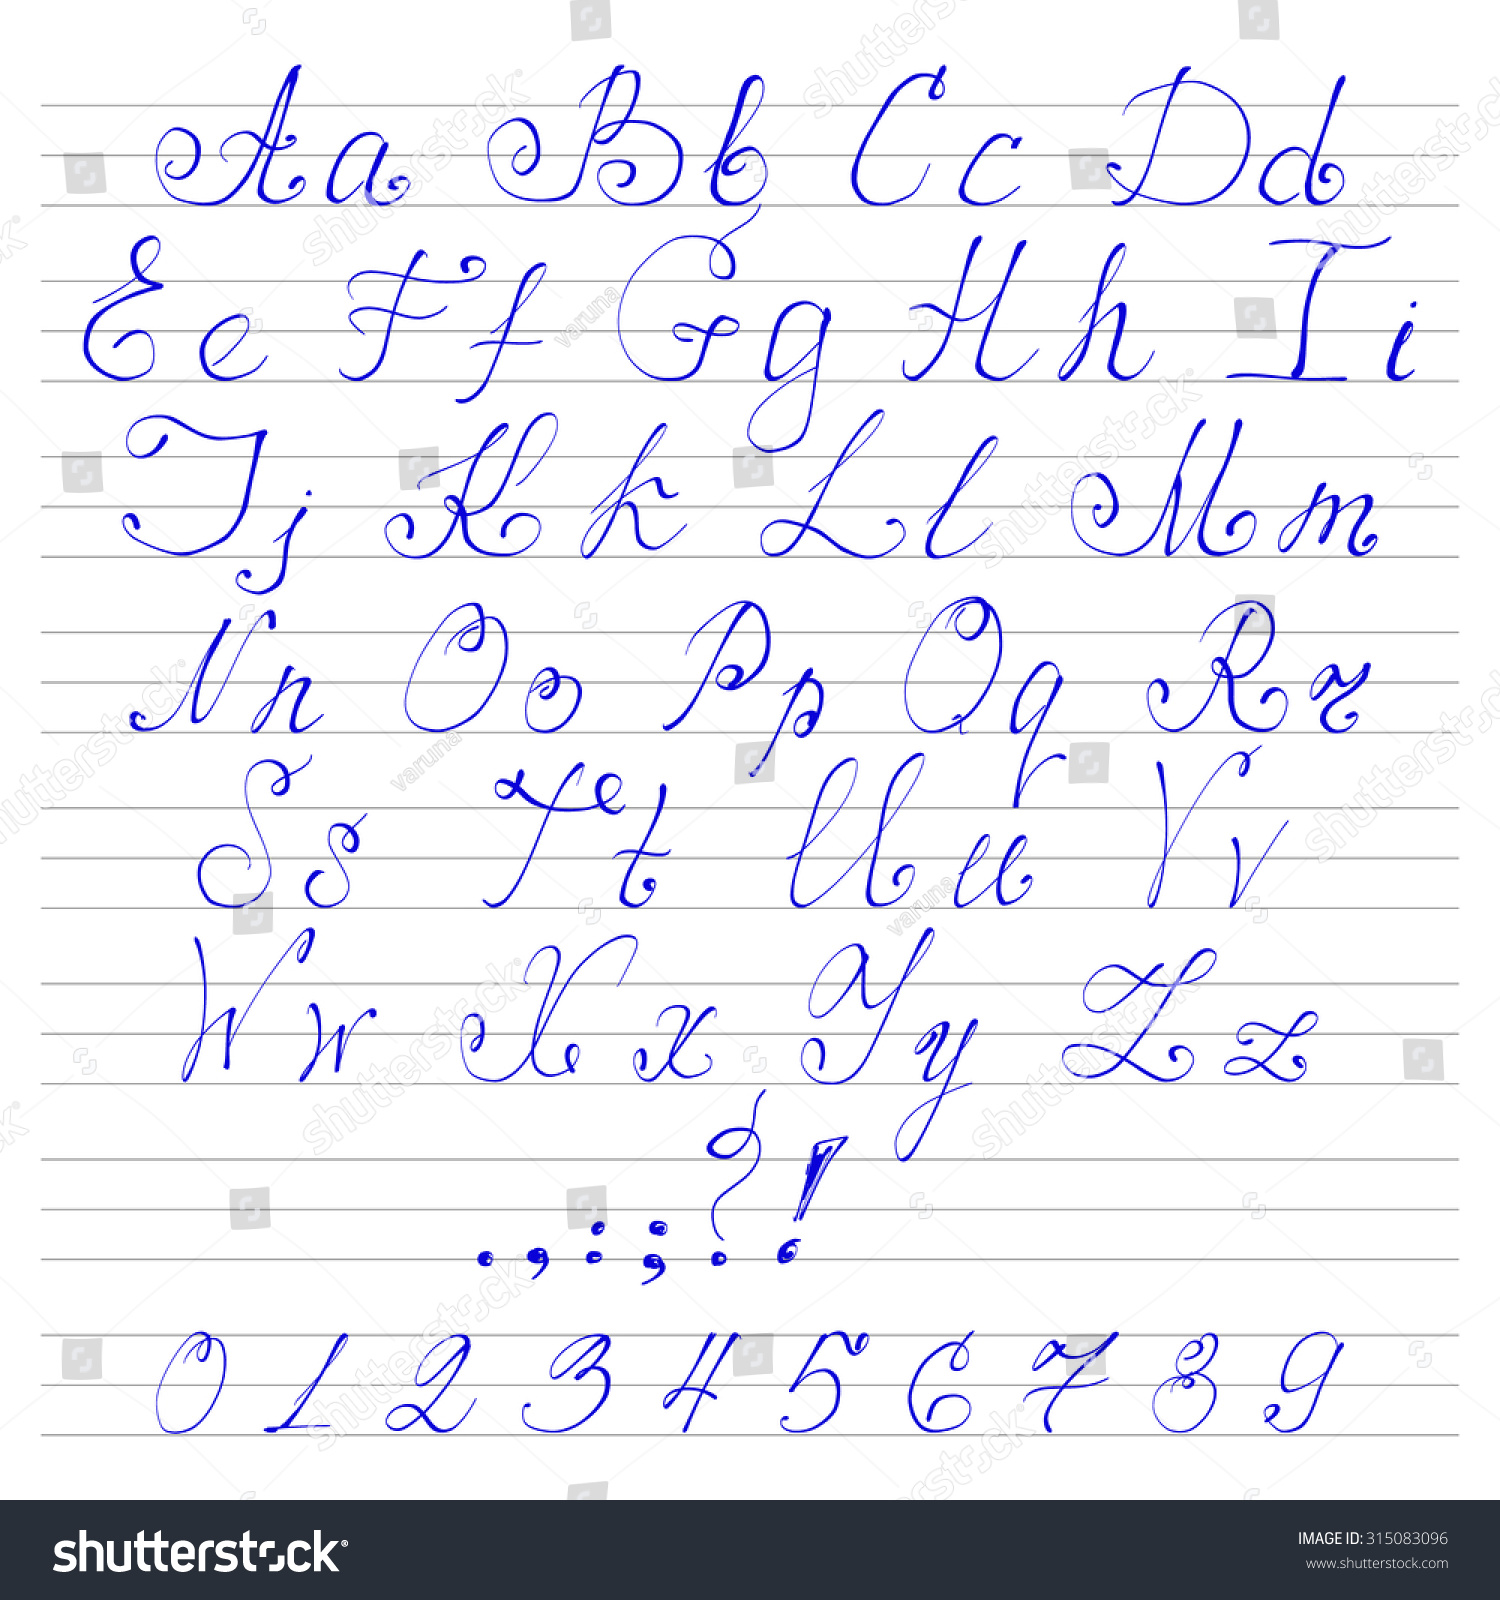 Aa Bb Cc Dd
Ee Ff Gg Hh Ii
Jj Kk Ll Mm
Nn Oo Pp Qq Rr
Ss Tt Uu Vv
Ww Xx Yy Zz
. , : ; ? !
0 1 2 3 4 5 6 7 8 9
shutterstock
IMAGE ID: 315083096
www.shutterstock.com